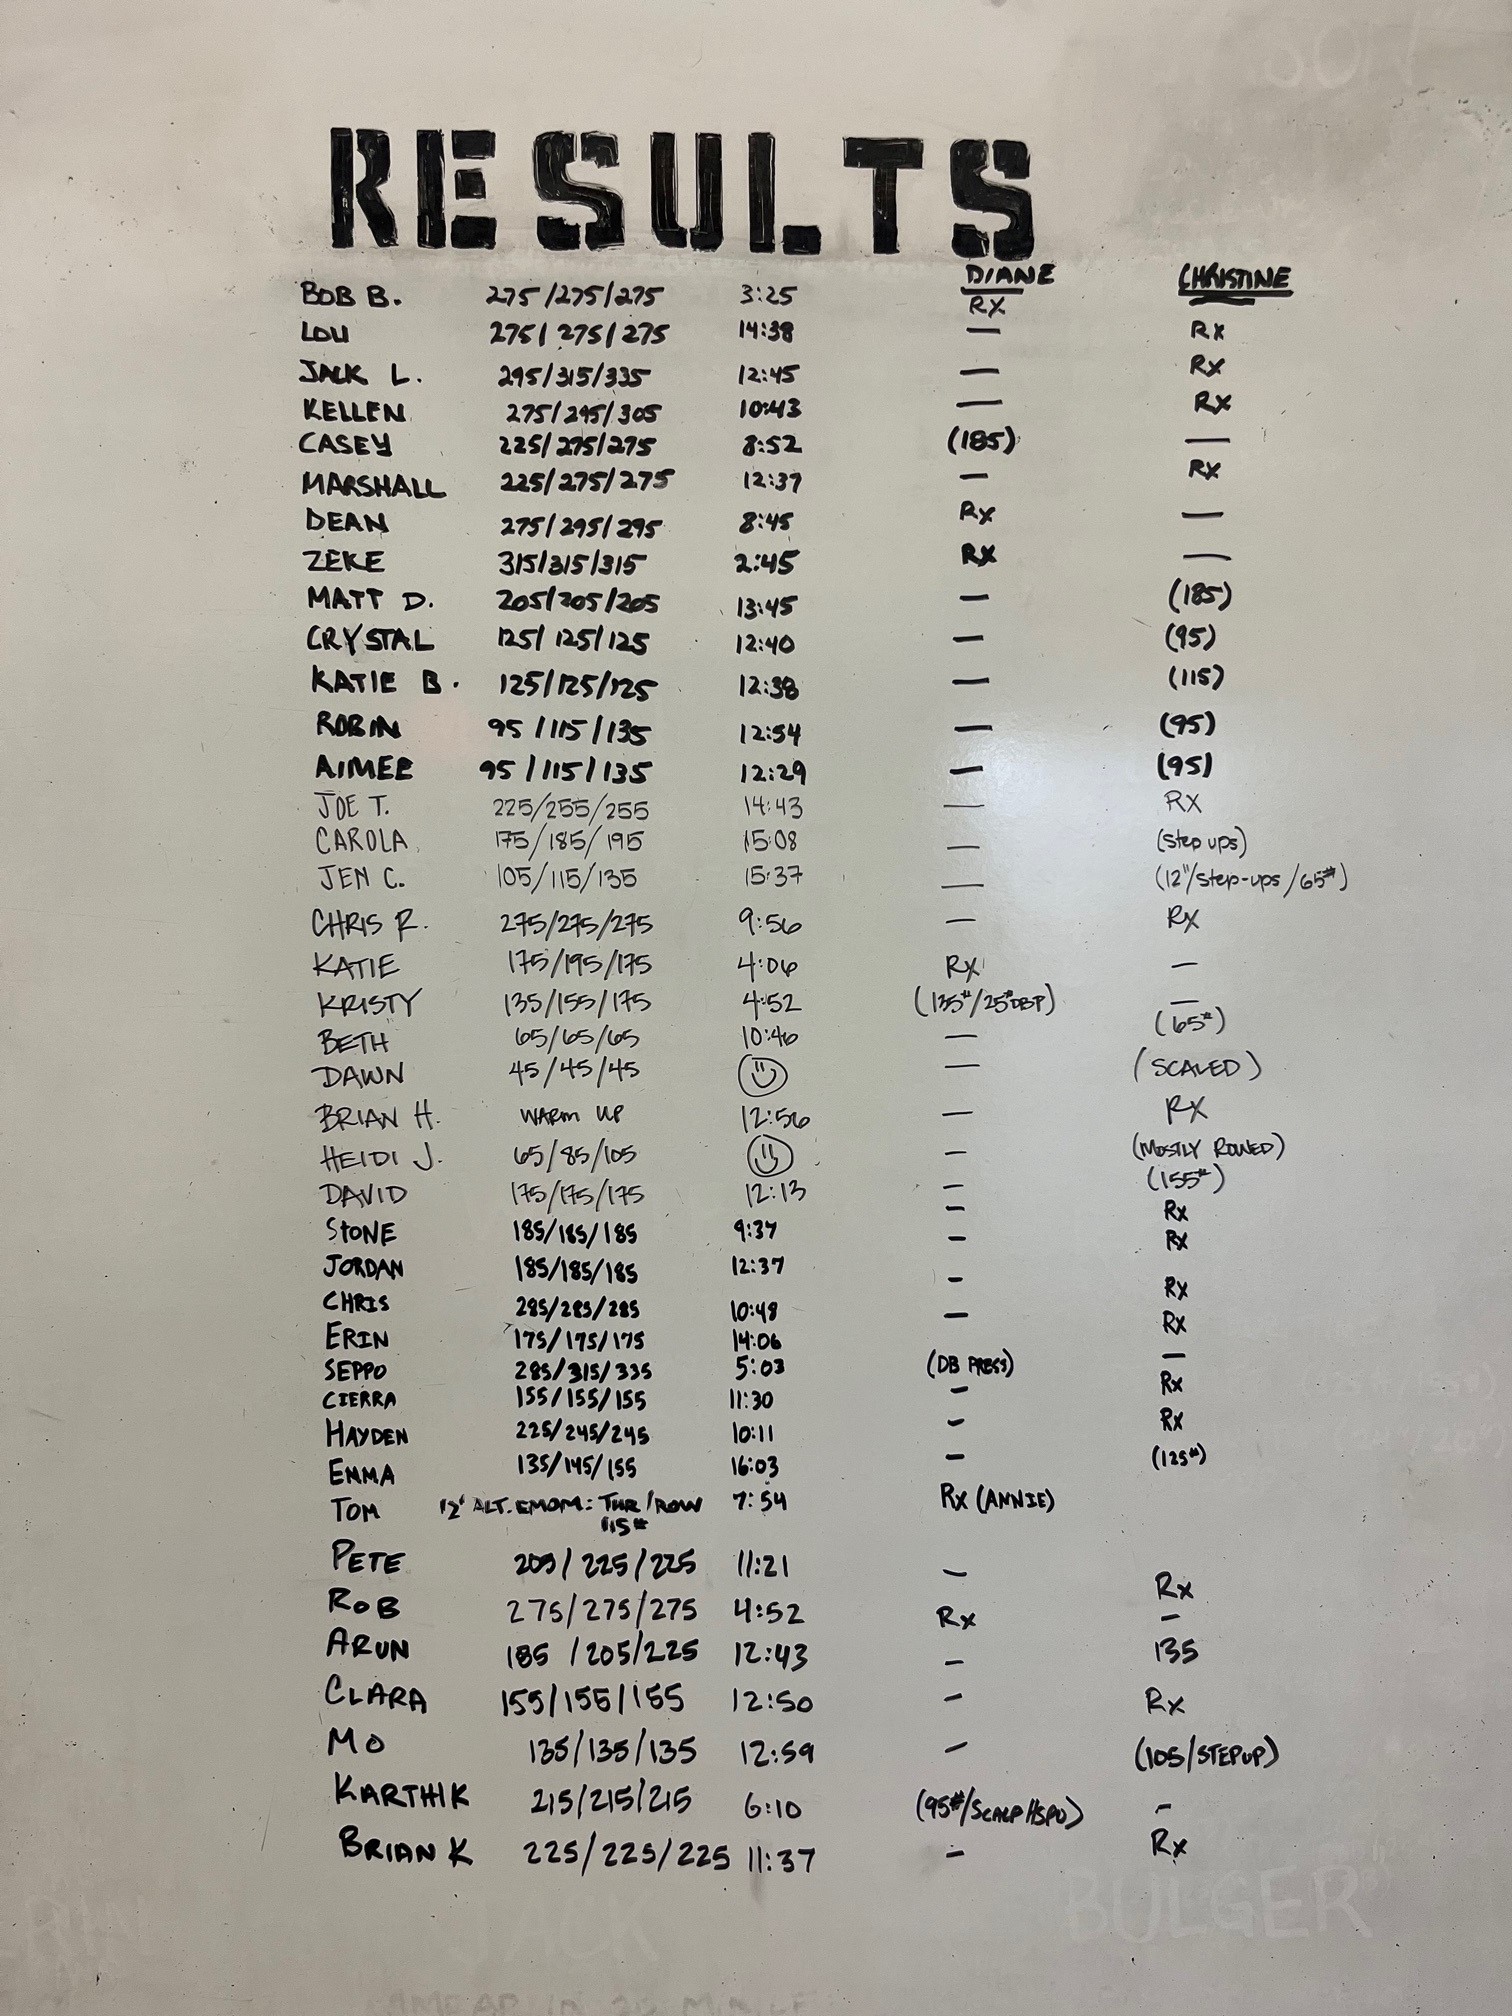 RESULTS
DIANE CHRISTINE
BOB B. 275/275/275 3:25 RX
LOU 275/275/275 14:38 — RX
JACK L. 295/315/335 12:45 — RX
KELLEN 275/295/305 10:43 — RX
CASEY 225/275/275 8:52 (185) —
MARSHALL 225/275/275 12:37 — RX
DEAN 275/295/295 8:45 RX —
ZEKE 315/315/315 2:45 RX —
MATT D. 205/205/205 13:45 — (185)
CRYSTAL 125/125/125 12:40 — (95)
KATIE B. 125/125/125 12:38 — (115)
ROBIN 95/115/135 12:54 — (95)
AIMEE 95/115/135 12:29 — (95)
JOE T. 225/255/255 14:43 — RX
CAROLA 175/185/195 15:08 — (step ups)
JEN C. 105/115/135 15:37 — (12"/step-ups/65#)
CHRIS R. 275/275/275 9:56 — RX
KATIE 175/195/175 4:06 RX —
KRISTY 135/155/175 4:52 (135#/25#DBP) —
BETH 65/65/65 10:46 — (65#)
DAWN 45/45/45 — (SCALED)
BRIAN H. WARM UP 12:56 — RX
HEIDI J. 65/85/105 — (MOSTLY ROWED)
DAVID 175/175/175 12:13 — (155#)
STONE 185/185/185 9:37 — Rx
JORDAN 185/185/185 12:37 — Rx
CHRIS 285/285/285 10:48 — Rx
ERIN 175/175/175 14:06 — Rx
SEPPO 285/315/335 5:03 (DB PRESS) —
CIERRA 155/155/155 11:30 — Rx
HAYDEN 225/245/245 10:11 — Rx
EMMA 135/145/155 16:03 — (125#)
TOM 12' ALT. EMOM: THR/ROW 7:54 Rx (ANNIE)
115#
PETE 205/225/225 11:21 — Rx
ROB 275/275/275 4:52 Rx —
ARUN 185/205/225 12:43 — 135
CLARA 155/155/155 12:50 — Rx
MO 135/135/135 12:59 — (105/STEPUP)
KARTHIK 215/215/215 6:10 (95#/SCALP HSPU) —
BRIAN K 225/225/225 11:37 — Rx
BULGER"
JACK